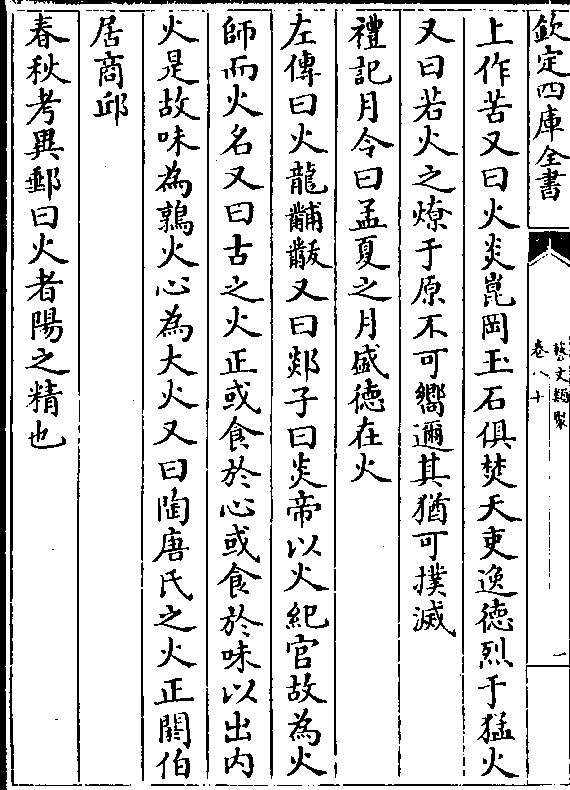 欽定四庫全書
藝文類聚
卷八十
一
上作苦又曰火炎崑岡玉石俱焚天吏逸德烈于猛火
又曰若火之燎于原不可嚮邇其猶可撲滅
禮記月令曰孟夏之月盛德在火
左傳曰火龍黼黻又曰郯子曰炎帝以火紀官故為火
師而火名又曰古之火正或食於心或食於味以出内
火是故味為鶉火心為大火又曰陶唐氏之火正閼伯
居商邱
春秋考異郵曰火者陽之精也